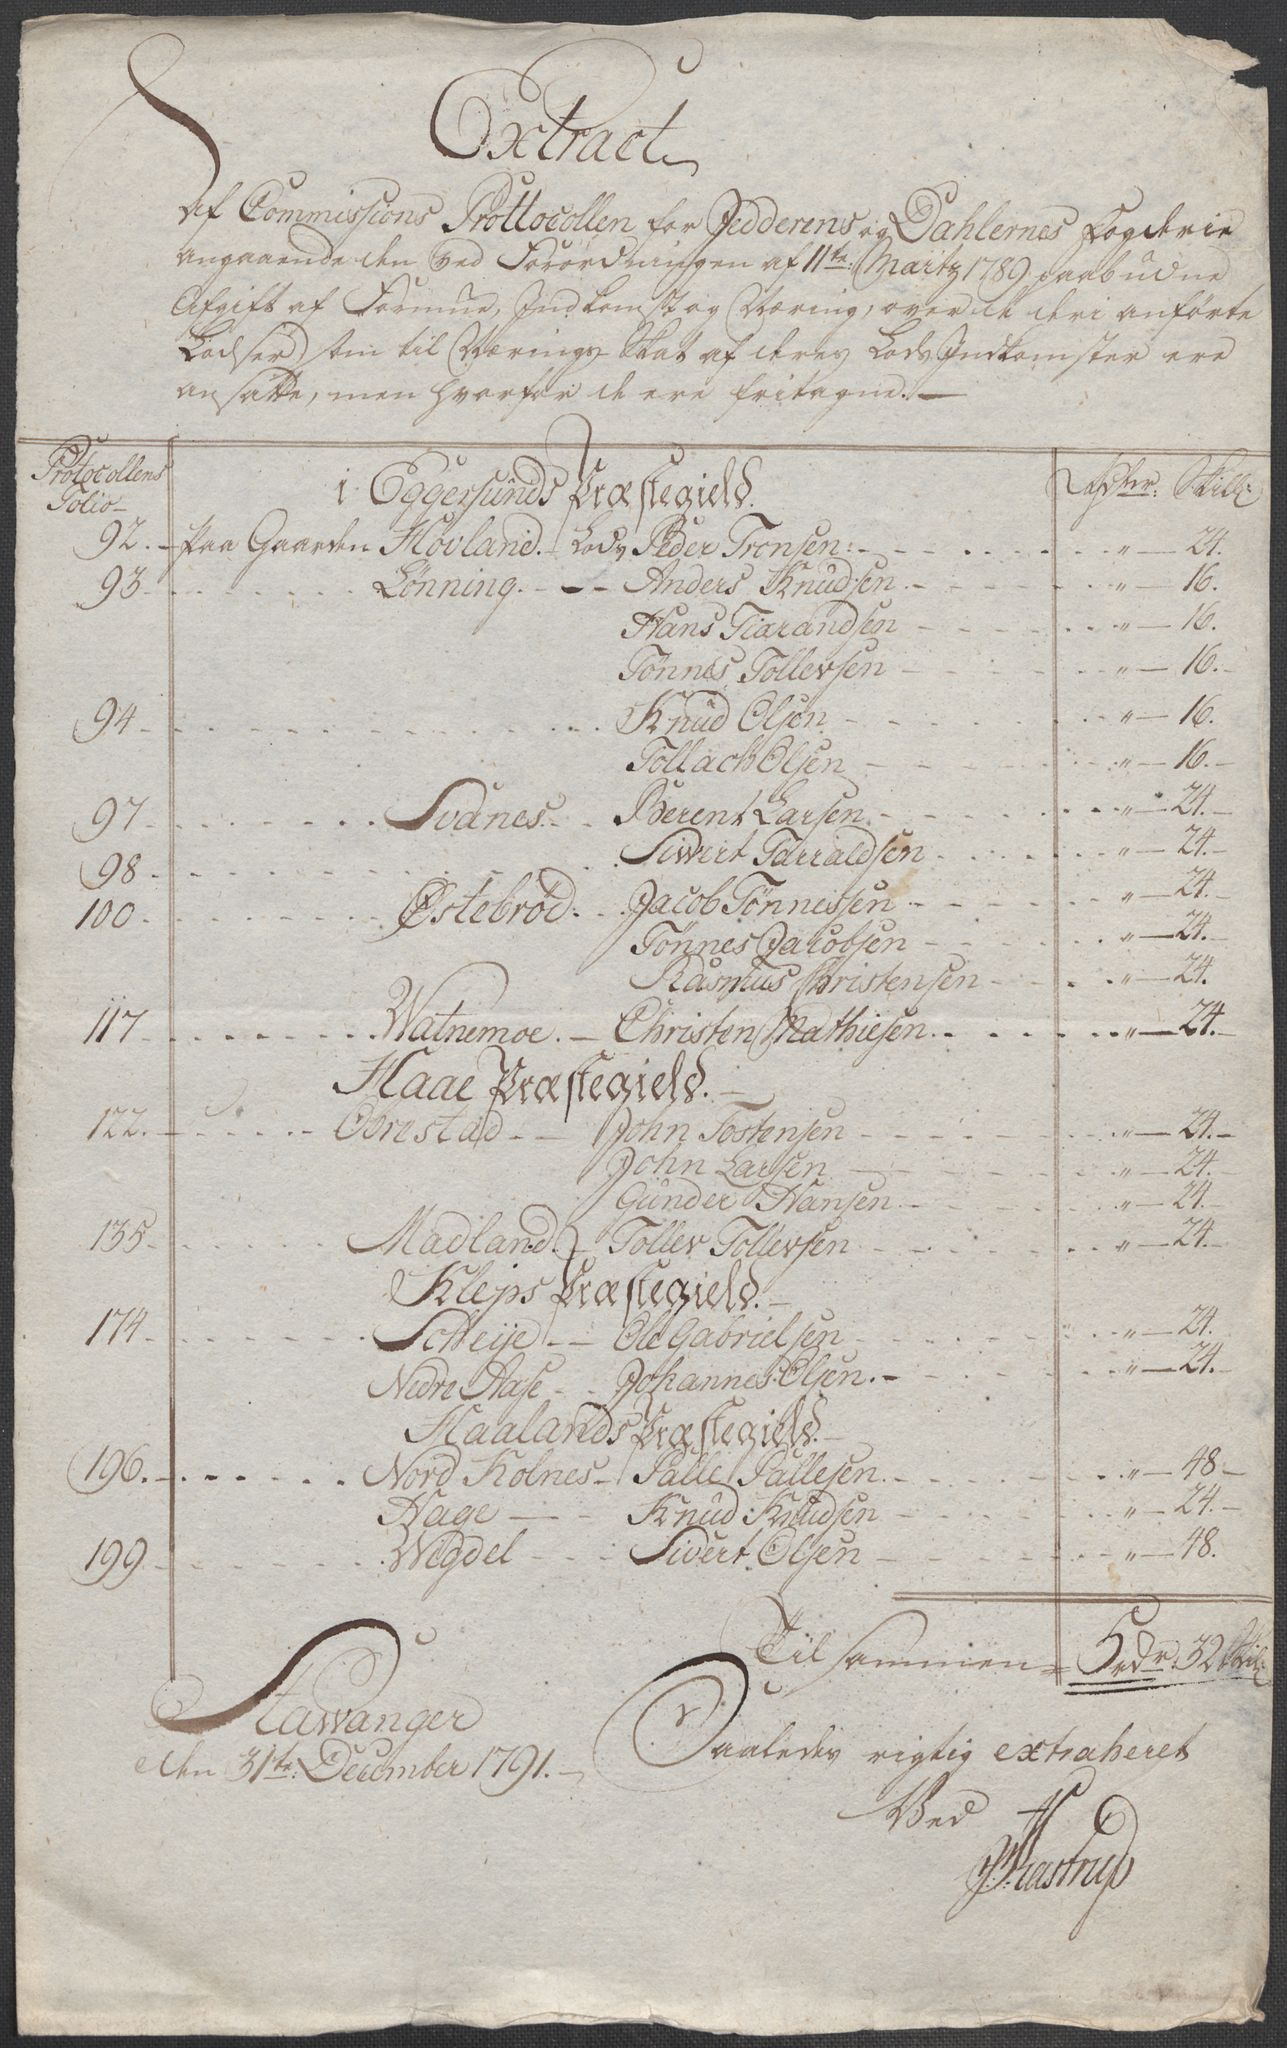 Extract
af Commissions Prottocollen for Jedderens og Dahlernes Fogderie
angaaende den ved Forordningen af 11te: Martz 1789 paabudne
Afgift af Formue, Indkomst og Næring, over de deri anførte
Lodser som til Nærings Skat af deres Lods Indkomster ere
ansatte, men hvorfor de ere fritagne.—
Protocollens
Folio—
i Eggersunds Præstegield.
Rdler: Skill:
92. — paa Gaarden Hovland. — Lods Peder Tronsen: „ — 24.
93 Lønning. — Anders Knudsen „ — 16.
Hans Tiarandsen „ — 16.
Tønnes Tollevsen „ — 16.
94 Knud Olsen „ — 16.
Tollach Olsen „ — 16.
97 Svanes. Berent Larsen „ — 24.
98 Siwert Tarraldsen „ — 24.
100 Østebrød. Jacob Tønnessen „ — 24.
Tønnes Jacobsen „ — 24.
Rasmus Christensen „ — 24.
117 Watnemoe. — Christen Mathiesen „ — 24.
Haae Præstegield.
122. Obrestad — John Tostensen „ — 24.
John Larsen „ — 24.
Gunder Hansen „ — 24.
135 Madland. Tollev Tollevsen „ — 24.
Kleps Præstegield.
174 Scheije — Ole Gabrielsen „ — 24.
Nedre Aase Johannes Olsen. „ — 24.
Haalands Præstegield.
196. Nord Kolnes — Palle Pallesen „ — 48
Hage — Knud Knudsen „ — 24.
199 Wigdel Sivert Olsen „ — 48.
Til sammen 5 rdr. 32 Skil:
Stawanger
den 31te: December 1791.—
Saaledes rigtig extraheret
Ved